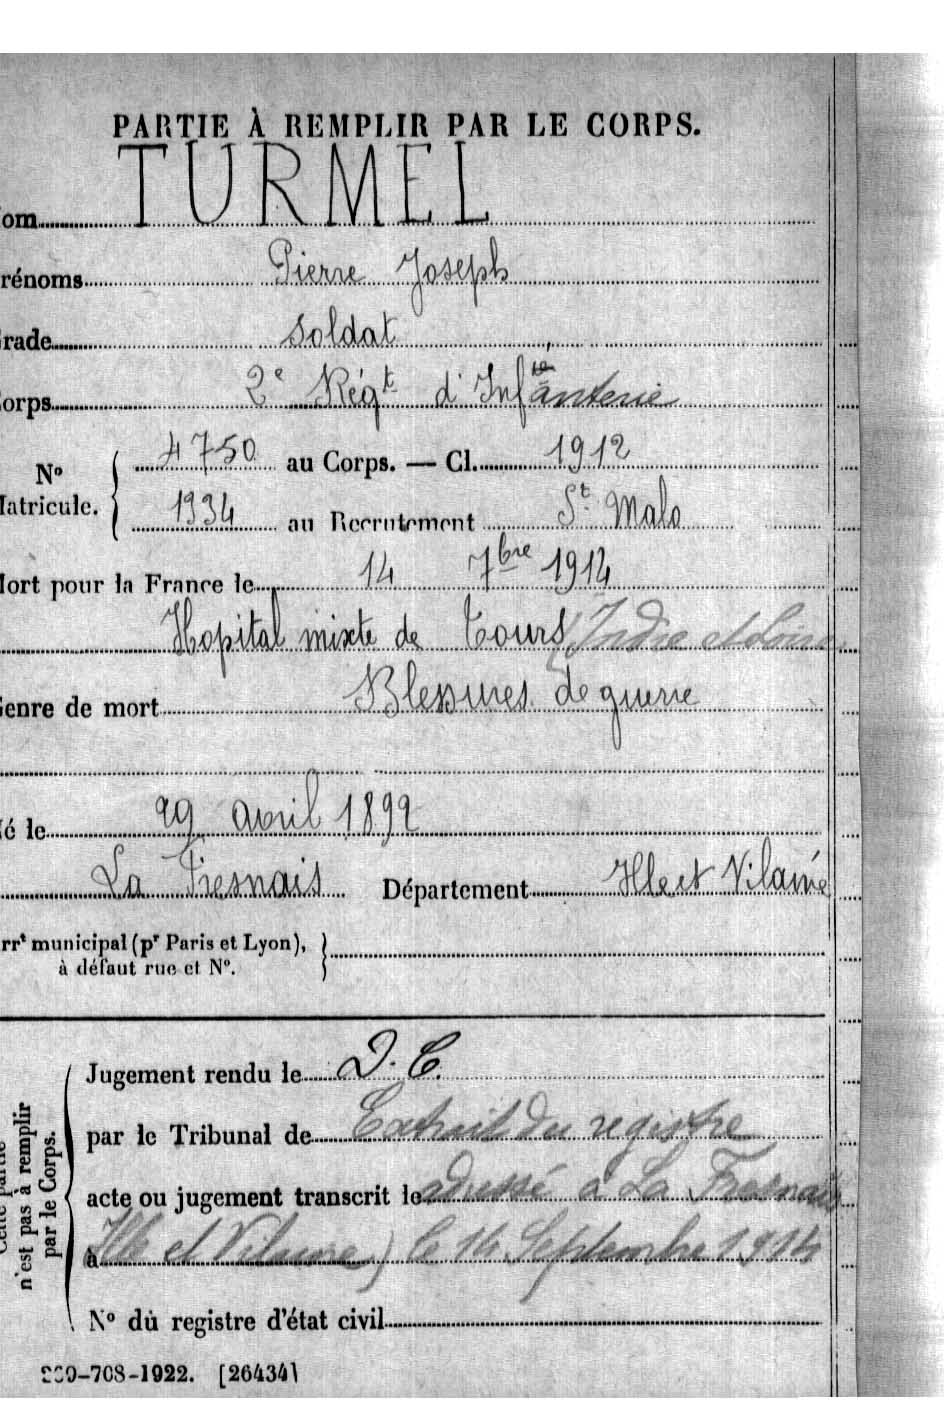 PARTIE À REMPLIR PAR LE CORPS.
om TURMEL
rénoms Pierre Joseph
rade Soldat
orps 2e Régt d'Infanterie
No 4750 au Corps. — Cl. 1912
atricule. 1934 au Recrutement St Malo
ort pour la France le 14 7bre 1914
Hopital mixte de Tours (Indre et Loire
enre de mort Blessures de guerre
é le 29 avril 1892
La Fresnais Département Ille et Vilaine
rrt municipal (pr Paris et Lyon),
à défaut rue et No.
Jugement rendu le D. C.
par le Tribunal de Extrait du registre
acte ou jugement transcrit le adressé à La Fresnais
à Ille et Vilaine) le 14 Septembre 1914
No du registre d'état civil
Cette partie
n'est pas à remplir
par le Corps.
-708-1922. [26434]